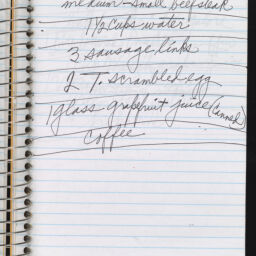 medium-small beefsteak
1½ cups water
3 sausage links
2 T. scrambled egg
1 glass grapefruit juice (canned)
coffee